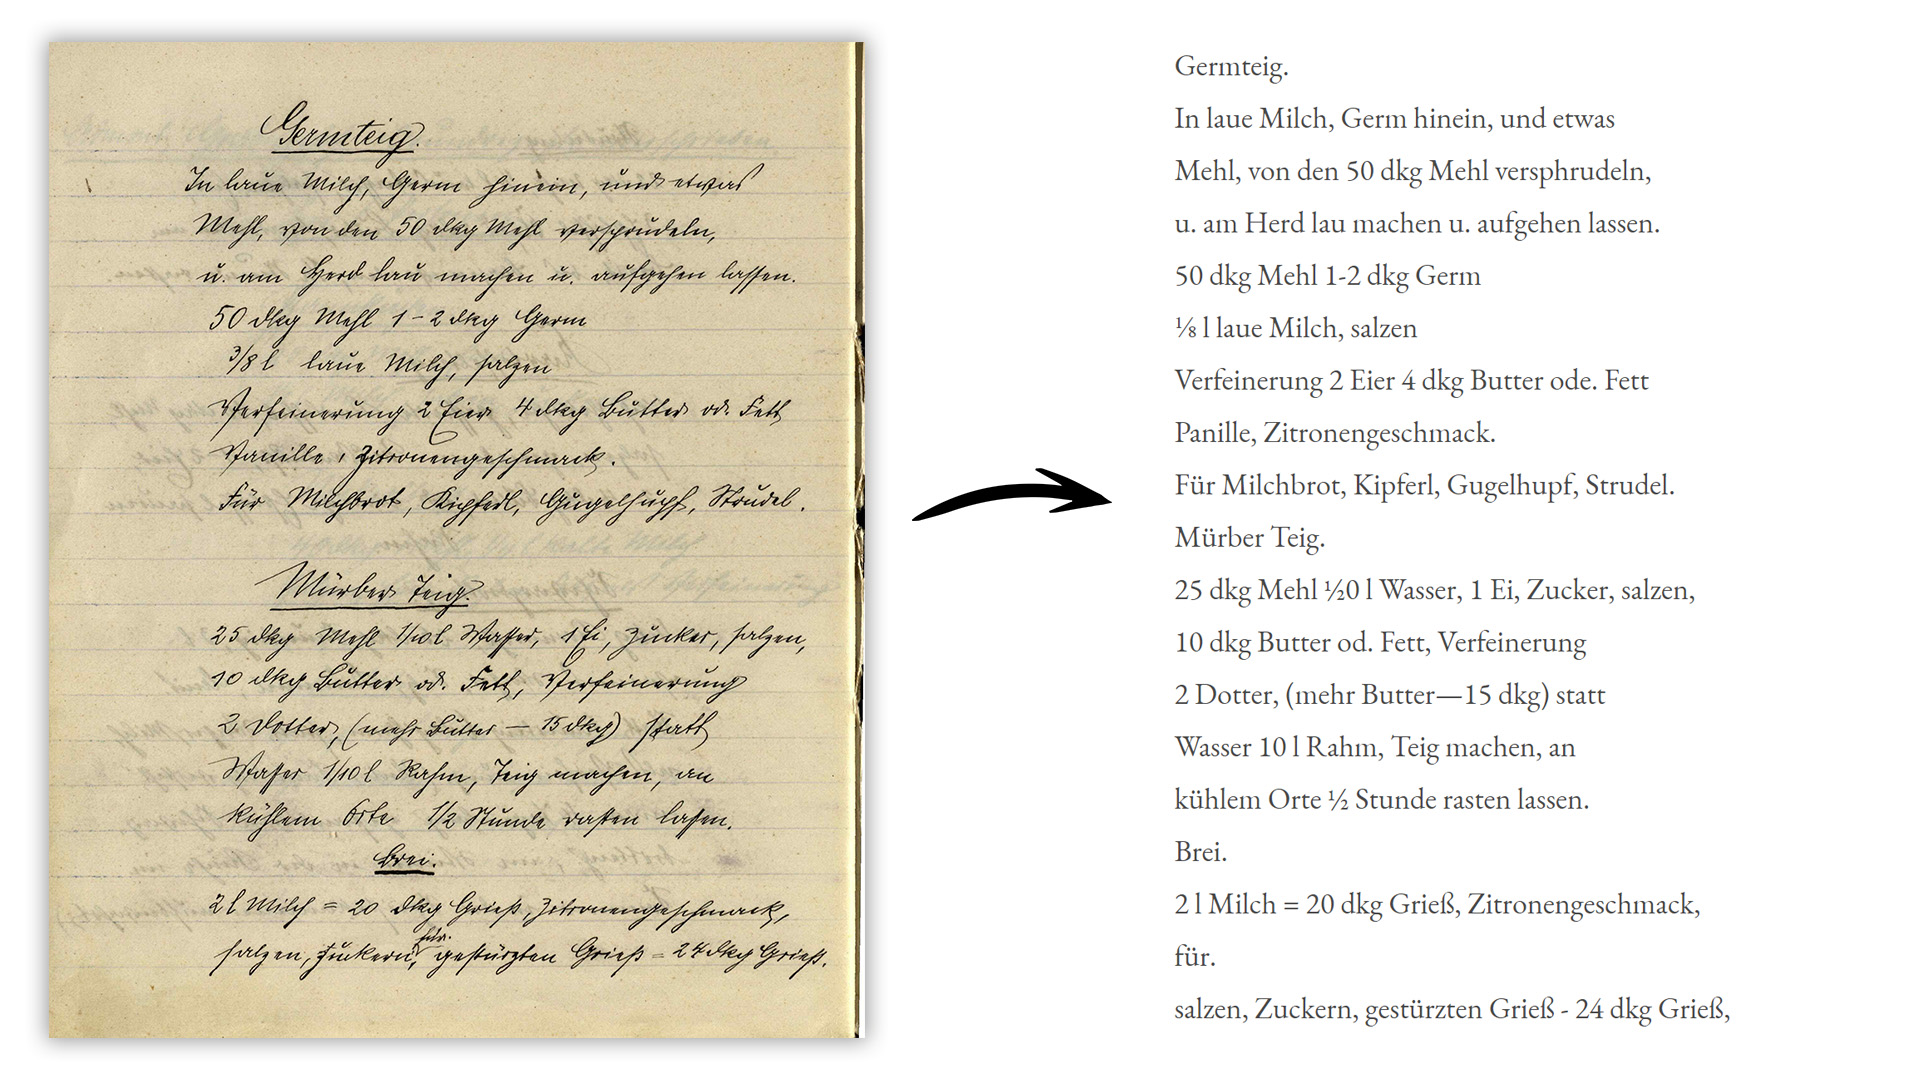 Germteig.
In laue Milch, Germ hinein, und etwas
Mehl, von den 50 dkg Mehl versprudeln,
u. am Herd lau machen u. aufgehen lassen.
50 dkg Mehl 1-2 dkg Germ
3/8 l laue Milch, salzen
Verfeinerung 2 Eier 4 dkg Butter od. Fett
Vanille, Zitronengeschmack.
Für Milchbrot, Kipferl, Gugelhupf, Strudel.
Mürber Teig.
25 dkg Mehl 1/10 l Wasser, 1 Ei, Zucker, salzen,
10 dkg Butter od. Fett, Verfeinerung
2 Dotter, (mehr Butter — 15 dkg) statt
Wasser 1/10 l Rahm, Teig machen, an
kühlem Orte 1/2 Stunde rasten lassen.
Brei.
2 l Milch = 20 dkg Grieß, Zitronengeschmack,
für.
salzen, zuckern, gestürzten Grieß = 24 dkg Grieß.
Germteig.
In laue Milch, Germ hinein, und etwas
Mehl, von den 50 dkg Mehl versphrudeln,
u. am Herd lau machen u. aufgehen lassen.
50 dkg Mehl 1-2 dkg Germ
⅛ l laue Milch, salzen
Verfeinerung 2 Eier 4 dkg Butter ode. Fett
Panille, Zitronengeschmack.
Für Milchbrot, Kipferl, Gugelhupf, Strudel.
Mürber Teig.
25 dkg Mehl ½0 l Wasser, 1 Ei, Zucker, salzen,
10 dkg Butter od. Fett, Verfeinerung
2 Dotter, (mehr Butter—15 dkg) statt
Wasser 10 l Rahm, Teig machen, an
kühlem Orte ½ Stunde rasten lassen.
Brei.
2 l Milch = 20 dkg Grieß, Zitronengeschmack,
für.
salzen, Zuckern, gestürzten Grieß - 24 dkg Grieß,